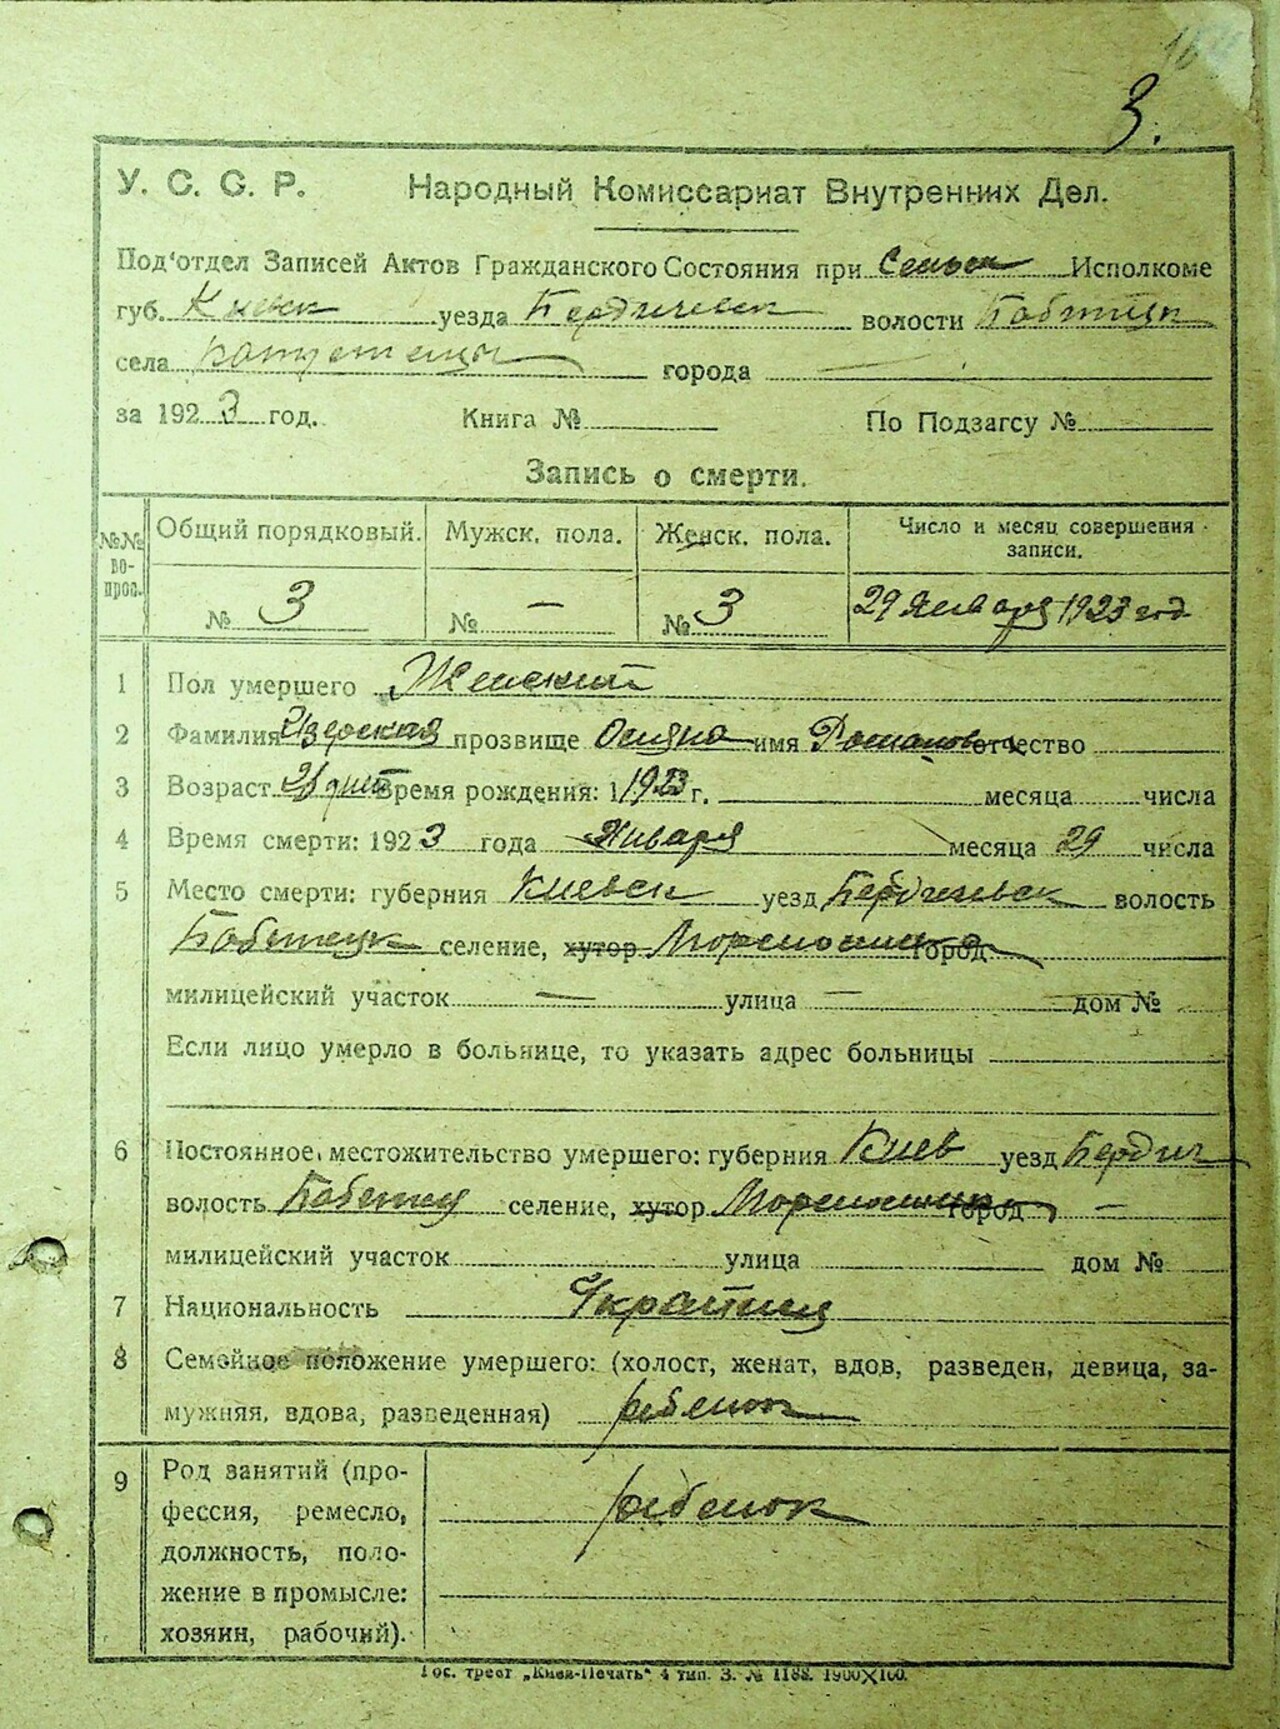 3.
У. С. С. Р. Народный Комиссариат Внутренних Дел.
Под'отдел Записей Актов Гражданского Состояния при Сельск Исполкоме
губ. Киевск уезда Бердичевск волости
села города
за 1923 год. Книга № По Подзагсу №
Запись о смерти.
№№ вопрос. Общий порядковый. Мужск. пола. Женск. пола. Число и месяц совершения записи.
№ 3 № — № 3 29 Января 1923 год
1 Пол умершего Женский
2 Фамилия прозвище имя отчество
3 Возраст дней Время рождения: 1 1923 г. месяца числа
4 Время смерти: 1923 года Января месяца 29 числа
5 Место смерти: губерния Киевск уезд Бердичевск волость
селение, хутор город
милицейский участок — улица — дом №
Если лицо умерло в больнице, то указать адрес больницы
6 Постоянное местожительство умершего: губерния Киев уезд Бердич
волость селение, хутор город —
милицейский участок улица дом №
7 Национальность
8 Семейное положение умершего: (холост, женат, вдов, разведен, девица, за-
мужняя, вдова, разведенная) ребенок
9 Род занятий (про-
фессия, ремесло,
должность, поло-
жение в промысле:
хозяин, рабочий).
ребенок
Гос. трест „Киев-Печать“ 4 тип. З. № 1188. 1900X100.